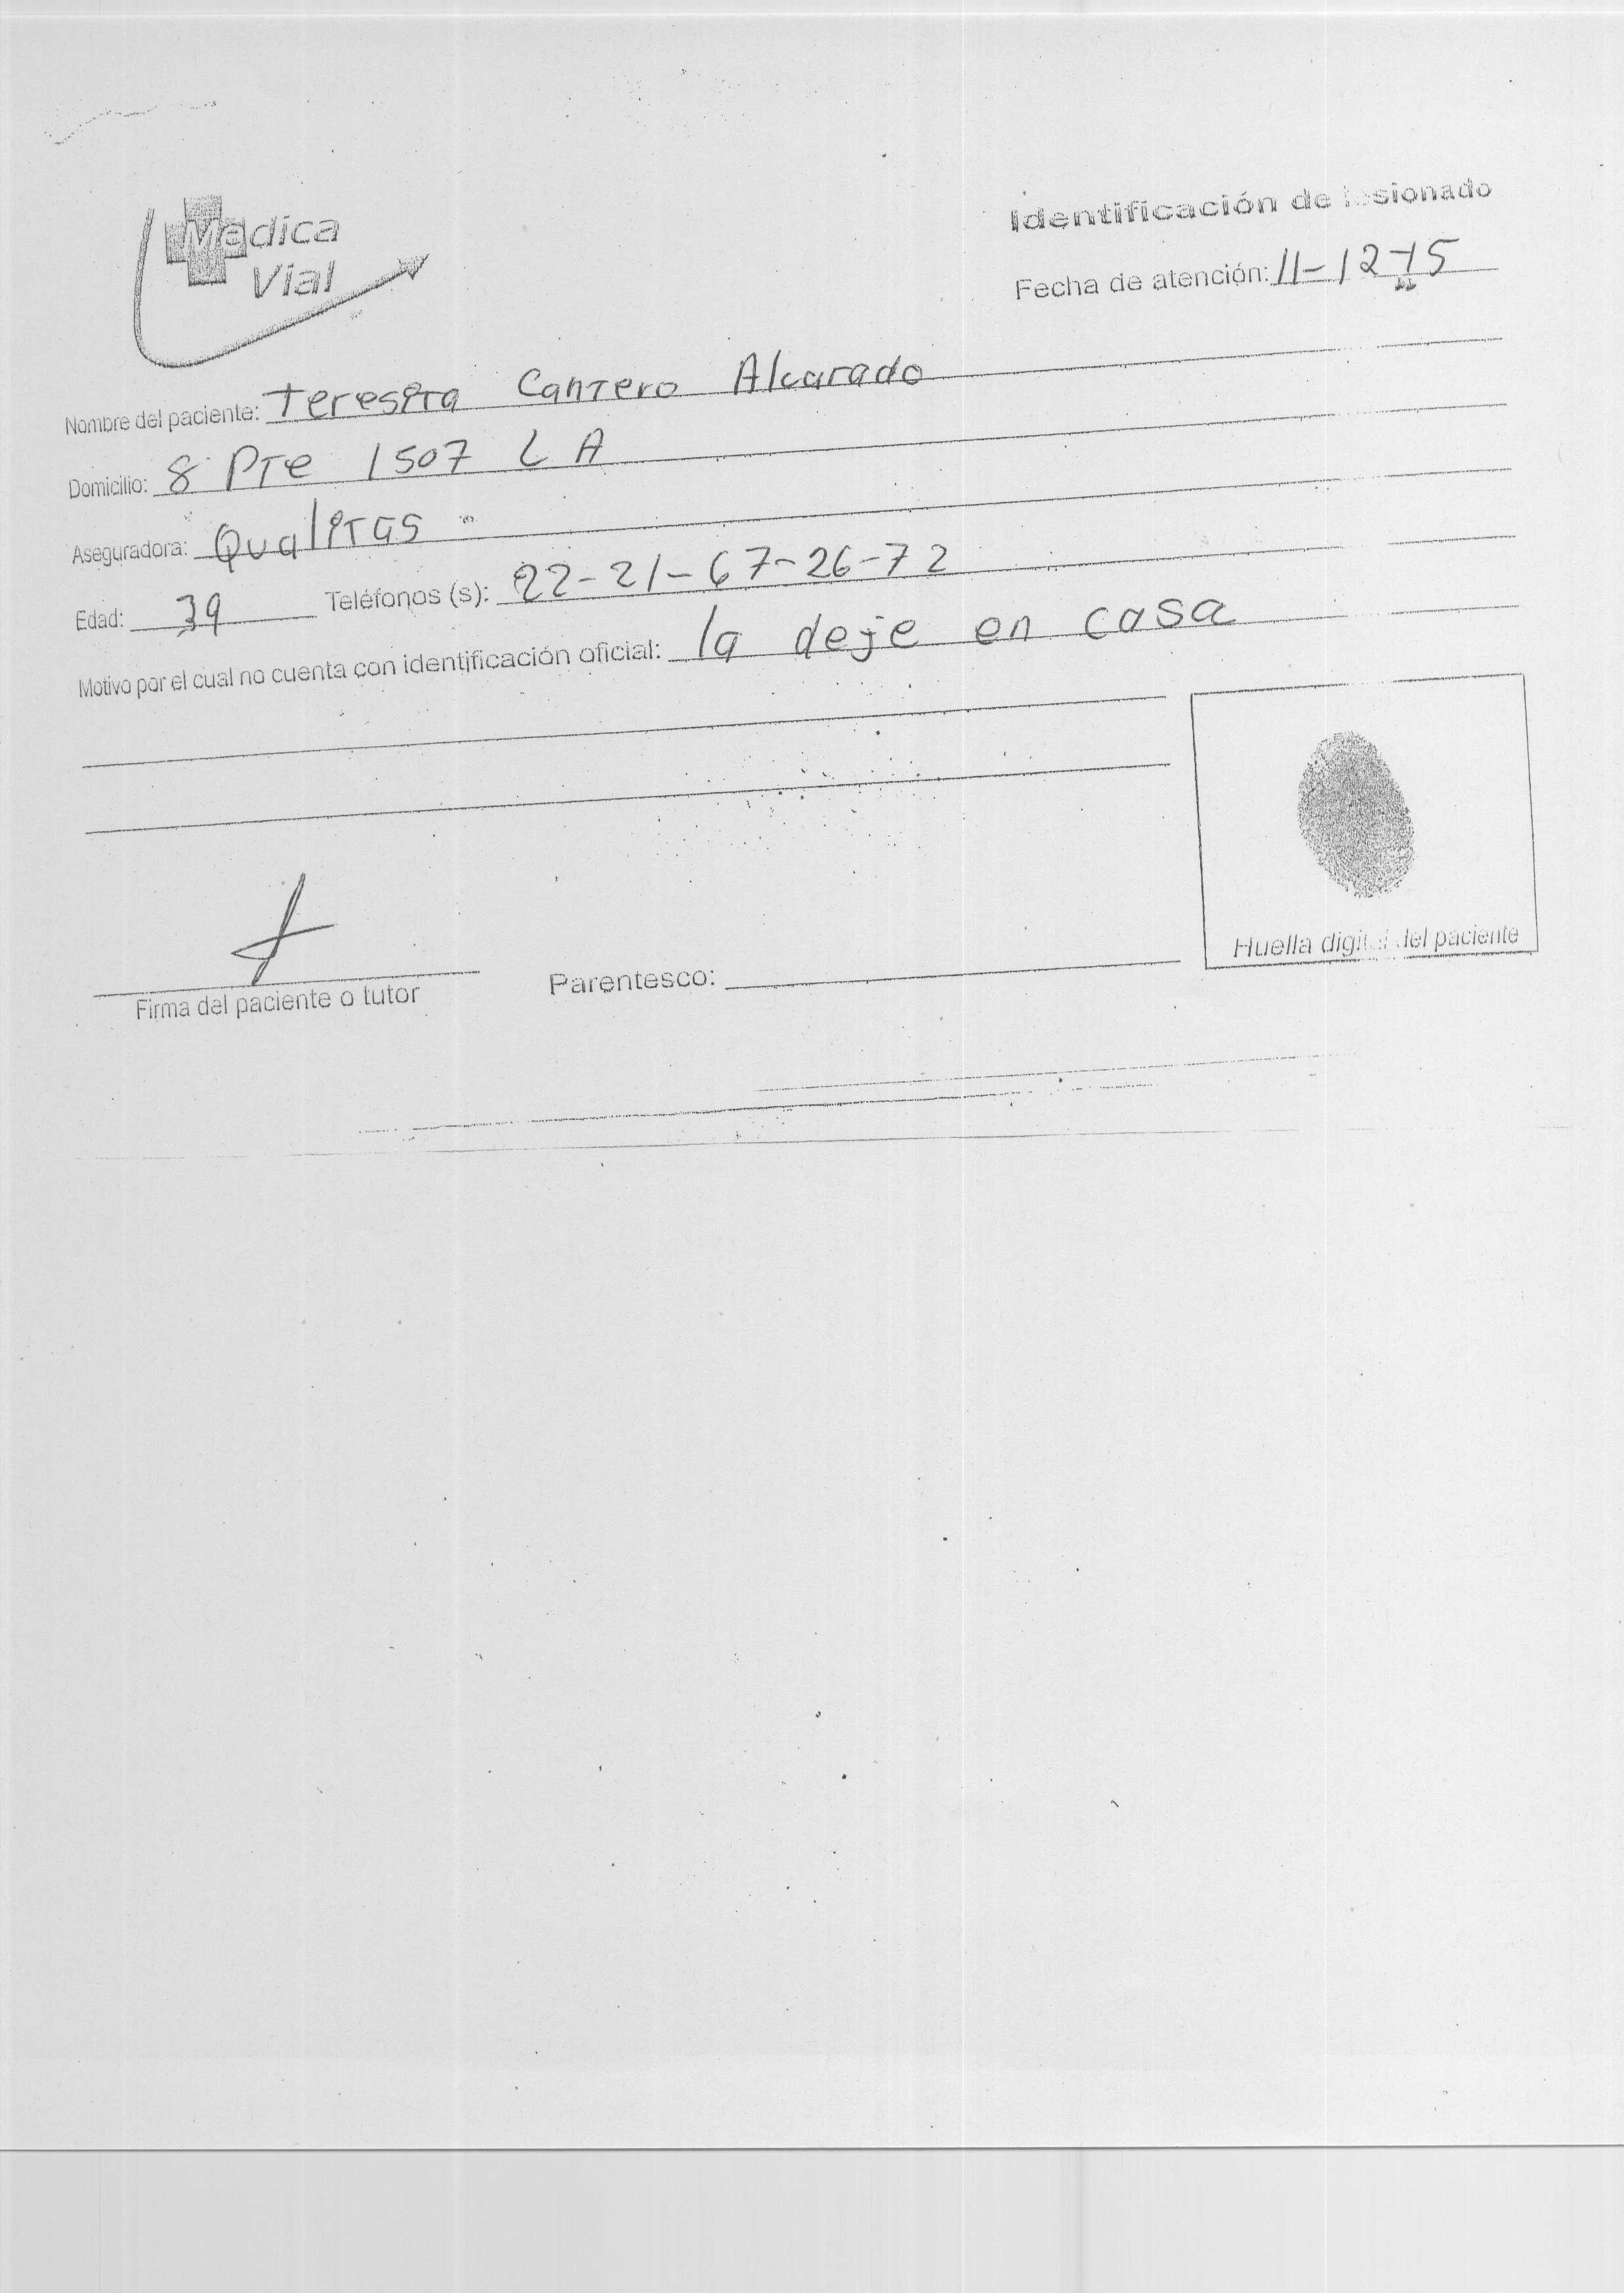 Medica
Vial
Identificación de lesionado
Fecha de atención: 11-12-15
Nombre del paciente: Teresita Cantero Alvarado
Domicilio: 8 Pte 1507 L A
Aseguradora: Qualitas
Edad: 39 Teléfonos (s): 22-21-67-26-72
Motivo por el cual no cuenta con identificación oficial: la deje en casa
Huella digital del paciente
Firma del paciente o tutor Parentesco: